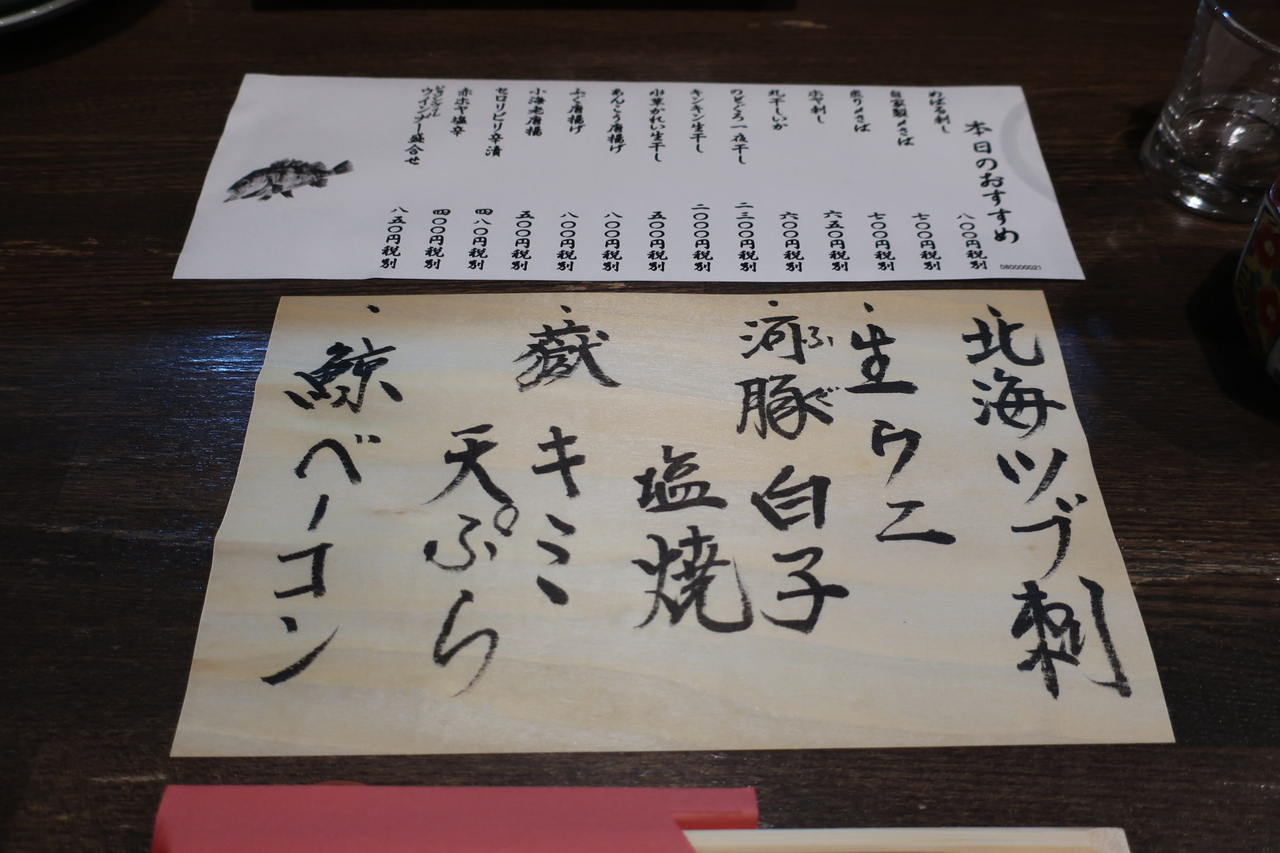 本日のおすすめ
めばる刺し 八〇〇円税別
自家製〆さば 七〇〇円税別
炙り〆さば 七〇〇円税別
ホヤ刺し 六五〇円税別
丸干しいか 六〇〇円税別
のどぐろ一夜干し 二三〇〇円税別
キンキン生干し 二〇〇〇円税別
かれい生干し 五〇〇円税別
あんこう唐揚げ 八〇〇円税別
ふぐ唐揚げ 八〇〇円税別
小海老唐揚 五〇〇円税別
セロリピリ辛漬 四八〇円税別
赤ホヤ塩辛 四〇〇円税別
ウインナー盛合せ 八五〇円税別
080000021
・北海ツブ刺
・生ウニ
・河豚白子
ふぐ
塩焼
・嶽キミ
天ぷら
・鯨ベーコン